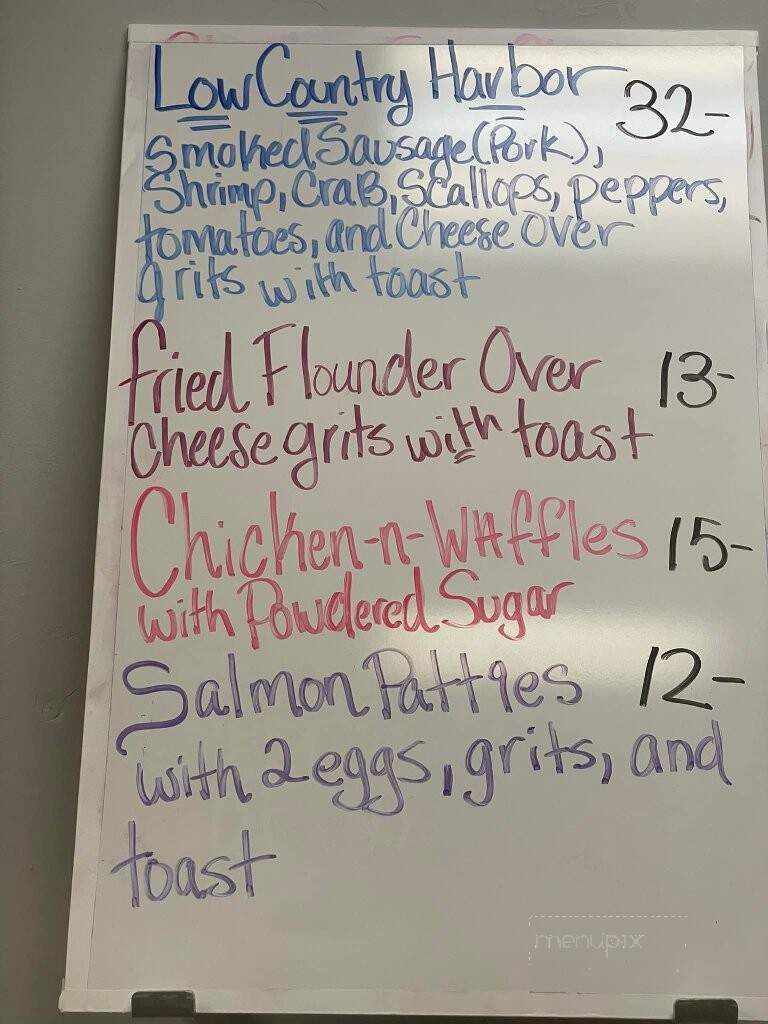 Low Country Harbor 32-
Smoked Sausage (Pork),
Shrimp, CraB, Scallops, peppers,
tomatoes, and Cheese Over
grits with toast
fried Flounder Over 13-
Cheese grits with toast
Chicken-n-WAffles 15-
with Powdered Sugar
Salmon Patties 12-
with 2 eggs, grits, and
toast
menupix